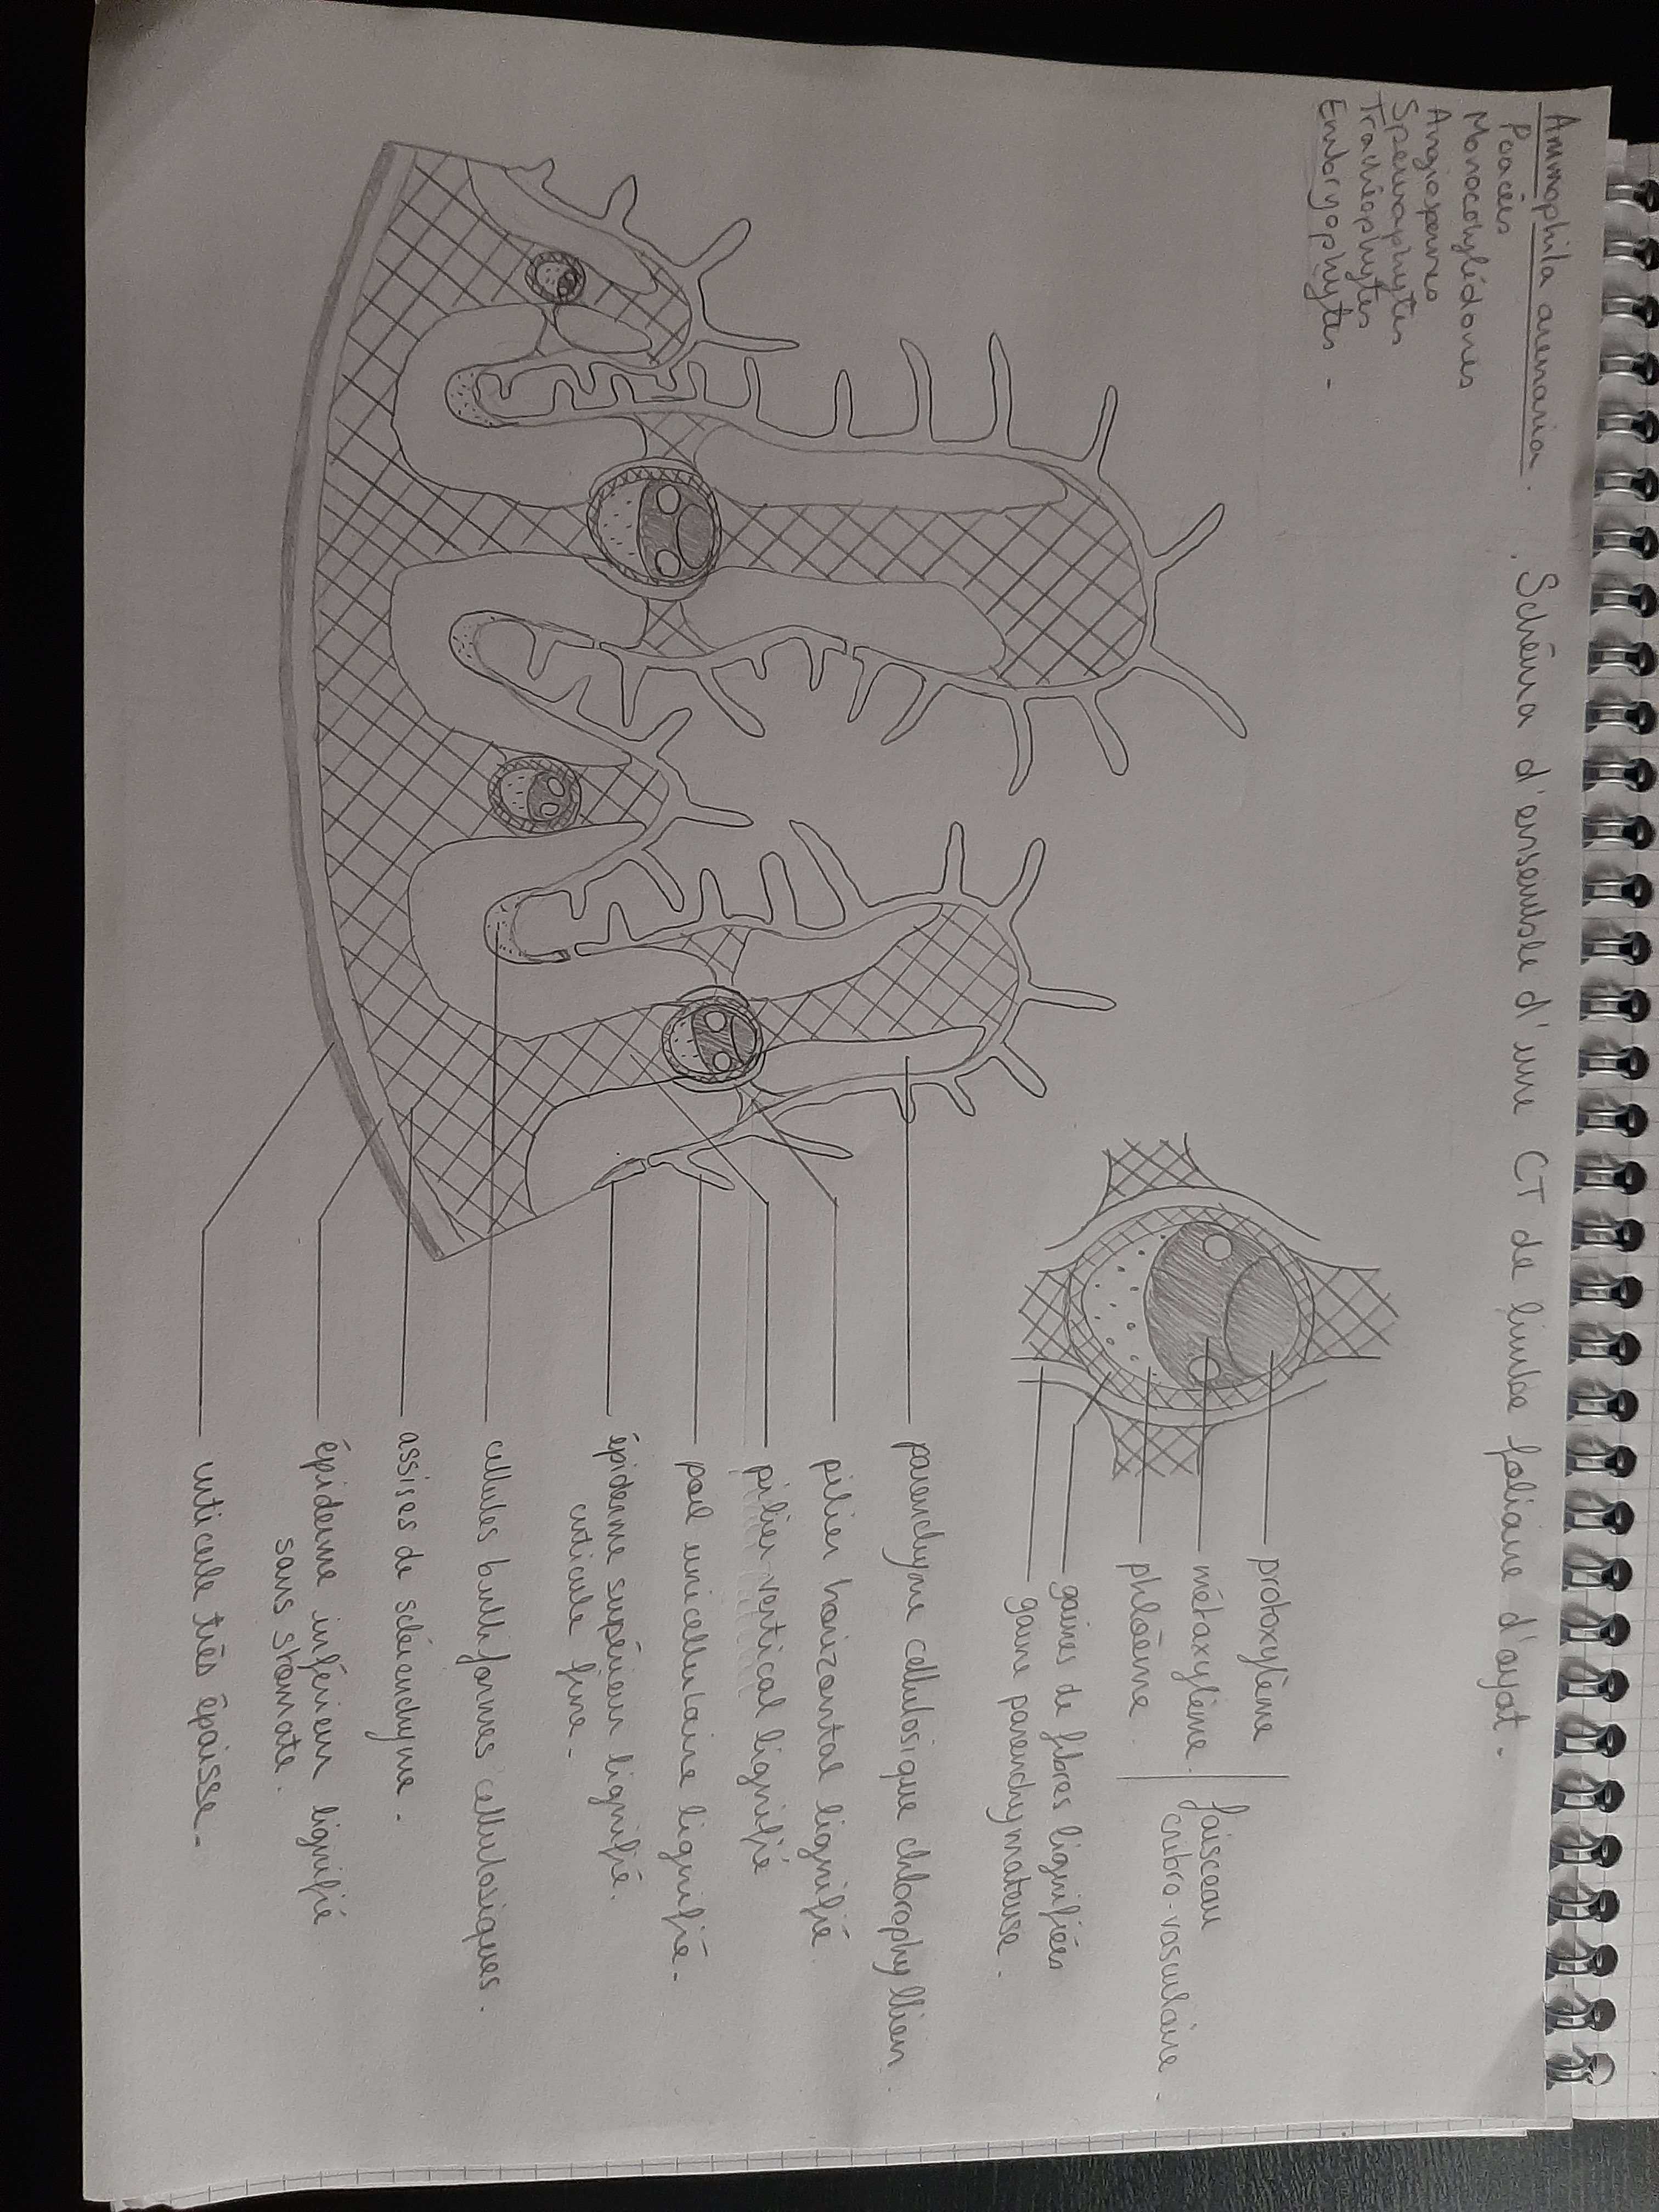 Ammophila arenaria.
Poacées
Monocotylédones
Angiospermes
Spermaphytes
Trachéophytes
Embryophytes -
. Schéma d'ensemble d'une CT de limbe foliaire d'oyat -
protoxylème
métaxylème.
phloème.
faisceau
cribro-vasculaire -
gaines de fibres lignifiées
gaine parenchymateuse.
parenchyme cellulosique chlorophyllien.
pilier horizontal lignifié
pilier vertical lignifié
poil unicellulaire lignifié.
épiderme supérieur lignifié.
cuticule fine -
cellules bulliformes cellulosiques.
assises de sclérenchyme.
épiderme inférieur lignifié
sans stomate.
cuticule très épaisse -